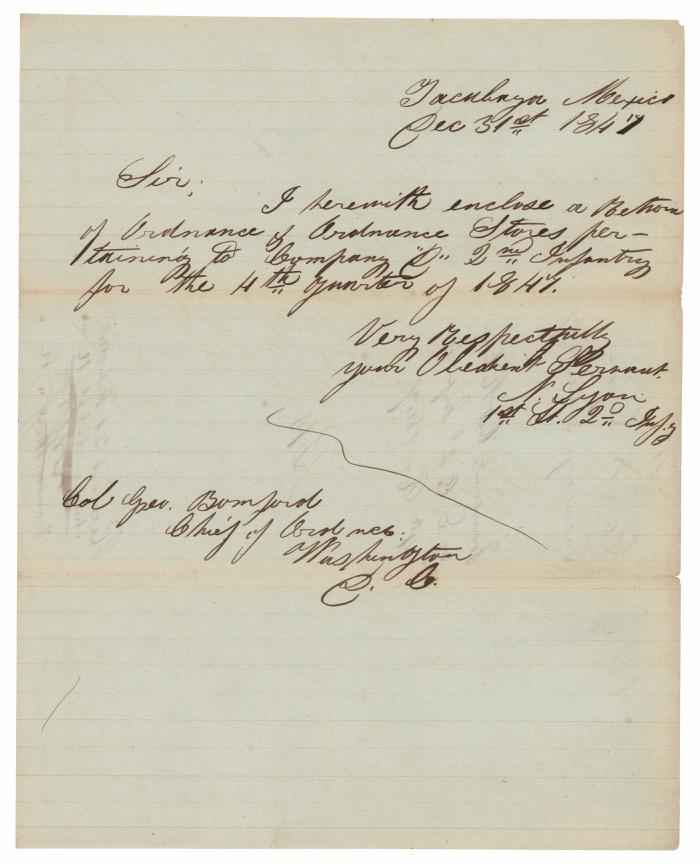 Tacubaya Mexico
Dec 31st 1847
Sir;
I herewith enclose a Return
of Ordnance & Ordnance Stores per-
taining to Company "D" 2nd Infantry
for the 4th quarter of 1847.
Very Respectfully
your Obedient Servant.
N. Lyon
1st Lt. 2D Inf.y
Col Geo. Bomford
Chief of Ordnce.
Washington
D. C.